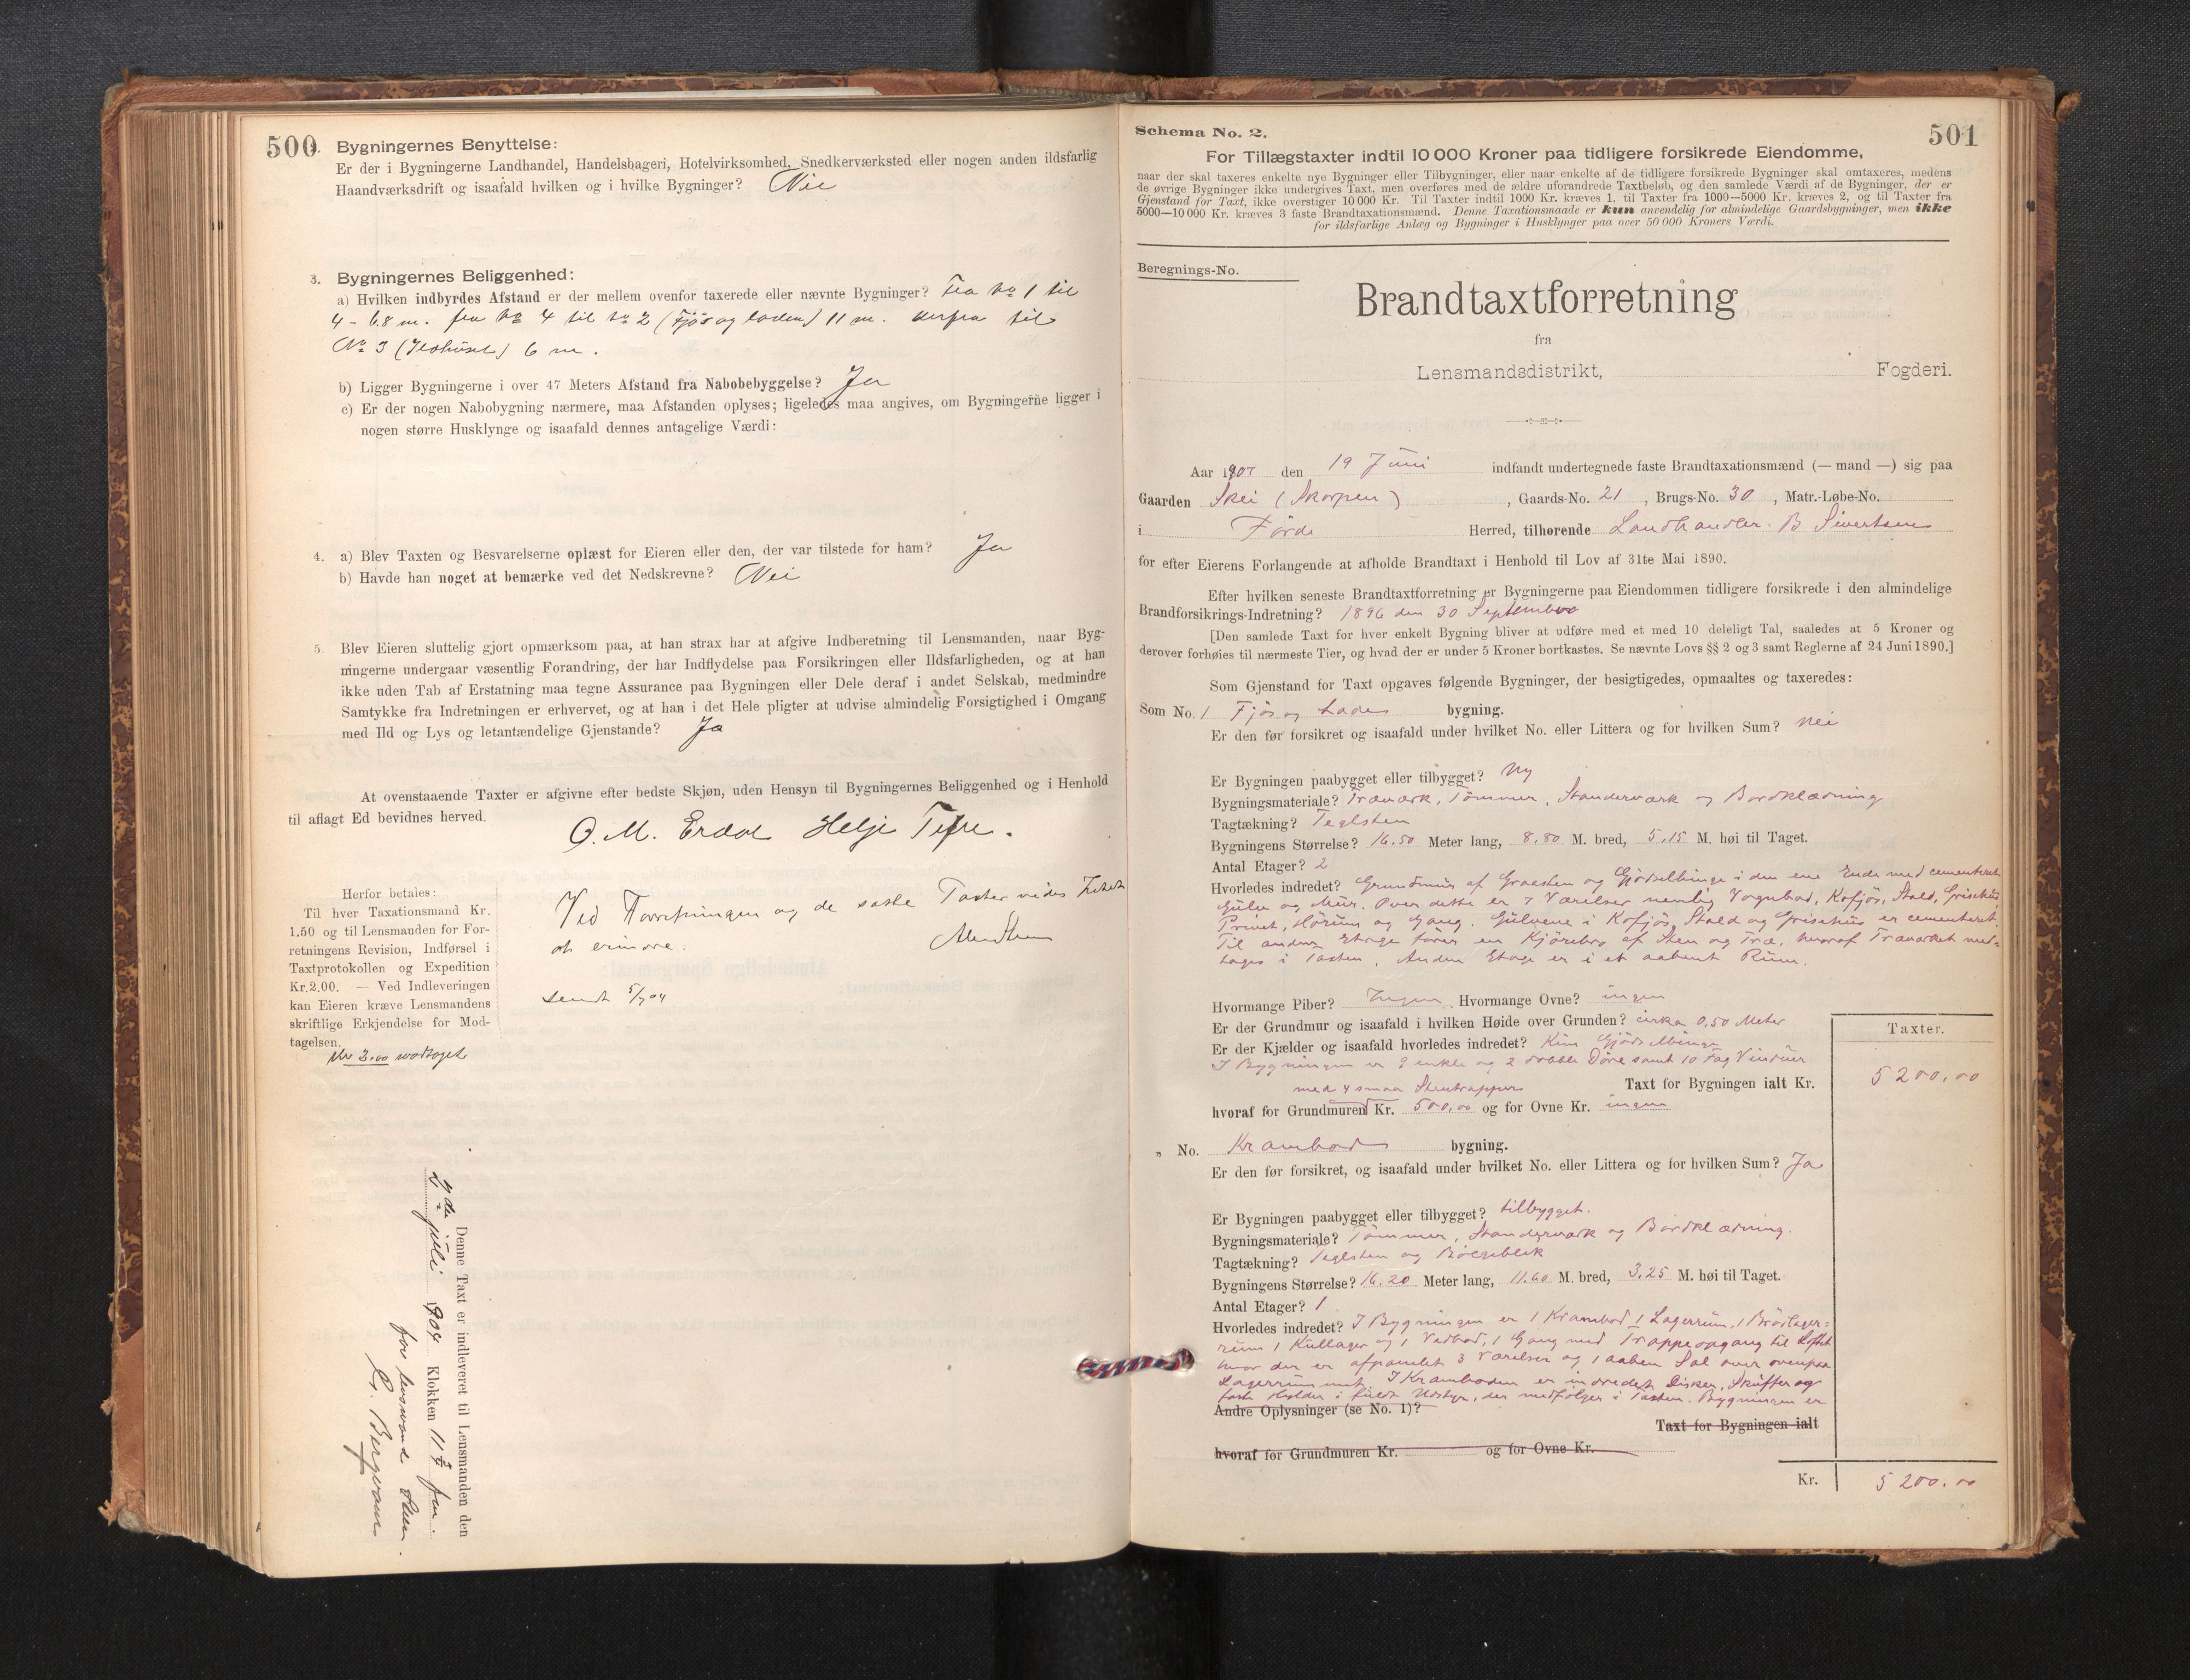 500
2. Bygningernes Benyttelse:
Er der i Bygningerne Landhandel, Handelsbageri, Hotelvirksomhed, Snedkerværksted eller nogen anden ildsfarlig
Haandværksdrift og isaafald hvilken og i hvilke Bygninger? Nei
3. Bygningernes Beliggenhed:
a) Hvilken indbyrdes Afstand er der mellem ovenfor taxerede eller nævnte Bygninger? Fra No 1 til
4 - 68 m. fra No 4 til No 2 (Fjös og laden) 11 m. derfra til
No 3 (Ildhuset) 6 m.
b) Ligger Bygningerne i over 47 Meters Afstand fra Nabobebyggelse? Ja
c) Er der nogen Nabobygning nærmere, maa Afstanden oplyses; ligeledes maa angives, om Bygningerne ligger i
nogen større Husklynge og isaafald dennes antagelige Værdi:
4. a) Blev Taxten og Besvarelserne oplæst for Eieren eller den, der var tilstede for ham? Ja
b) Havde han noget at bemærke ved det Nedskrevne? Nei
5. Blev Eieren sluttelig gjort opmærksom paa, at han strax har at afgive Indberetning til Lensmanden, naar Byg-
ningerne undergaar væsentlig Forandring, der har Indflydelse paa Forsikringen eller Ildsfarligheden, og at han
ikke uden Tab af Erstatning maa tegne Assurance paa Bygningen eller Dele deraf i andet Selskab, medmindre
Samtykke fra Indretningen er erhvervet, og at han i det Hele pligter at udvise almindelig Forsigtighed i Omgang
med Ild og Lys og letantændelige Gjenstande? Ja
At ovenstaaende Taxter er afgivne efter bedste Skjøn, uden Hensyn til Bygningernes Beliggenhed og i Henhold
til aflagt Ed bevidnes herved.
O. M. Erdal Helje Tefre.
Herfor betales:
Til hver Taxationsmand Kr.
1.50 og til Lensmanden for For-
retningens Revision, Indførsel i
Taxtprotokollen og Expedition
Kr. 2.00. — Ved Indleveringen
kan Eieren kræve Lensmandens
skriftlige Erkjendelse for Mod-
tagelsen.
Kr 2.00 modtaget
Ved Forretningen og de satte Taxter vides Intet
at erindre.
sendt 5/7 04
Denne Taxt er indleveret til Lensmanden den
2den juli 1904 Klokken 11 fm.
for lensmand
E. Bergvam
Schema No. 2.
501
For Tillægstaxter indtil 10 000 Kroner paa tidligere forsikrede Eiendomme,
naar der skal taxeres enkelte nye Bygninger eller Tilbygninger, eller naar enkelte af de tidligere forsikrede Bygninger skal omtaxeres, medens
de øvrige Bygninger ikke undergives Taxt, men overføres med de ældre uforandrede Taxtbeløb, og den samlede Værdi af de Bygninger, der er
Gjenstand for Taxt, ikke overstiger 10 000 Kr. Til Taxter indtil 1000 Kr. kræves 1, til Taxter fra 1000—5000 Kr. kræves 2, og til Taxter fra
5000—10 000 Kr. kræves 3 faste Brandtaxationsmænd. Denne Taxationsmaade er kun anvendelig for almindelige Gaardsbygninger, men ikke
for ildsfarlige Anlæg og Bygninger i Husklynger paa over 50 000 Kroners Værdi.
Beregnings-No.
Brandtaxtforretning
fra
Lensmandsdistrikt, Fogderi.
Aar 1907 den 19 Juni indfandt undertegnede faste Brandtaxationsmænd (— mand —) sig paa
Gaarden Skei (Skorpen), Gaards-No. 21, Brugs-No. 30, Matr.-Løbe-No.
i Förde Herred, tilhørende Landhandler B Sivertsen
for efter Eierens Forlangende at afholde Brandtaxt i Henhold til Lov af 31te Mai 1890.
Efter hvilken seneste Brandtaxtforretning er Bygningerne paa Eiendommen tidligere forsikrede i den almindelige
Brandforsikrings-Indretning? 1896 den 30 September
[Den samlede Taxt for hver enkelt Bygning bliver at udføre med et med 10 deleligt Tal, saaledes at 5 Kroner og
derover forhøies til nærmeste Tier, og hvad der er under 5 Kroner bortkastes. Se nævnte Lovs §§ 2 og 3 samt Reglerne af 24 Juni 1890.]
Som Gjenstand for Taxt opgaves følgende Bygninger, der besigtigedes, opmaaltes og taxeredes:
Som No. 1 Fjös og Lade bygning.
Er den før forsikret og isaafald under hvilket No. eller Littera og for hvilken Sum? Nei
Er Bygningen paabygget eller tilbygget? Ny
Bygningsmateriale? Træværk, Tömmer, Standerværk og Bordklædning
Tagtækning? Teglsten
Bygningens Størrelse? 16.50 Meter lang, 8.80 M. bred, 5.15 M. høi til Taget.
Antal Etager? 2
Hvorledes indredet? Grundmur af Graasten og Gjödselbinge i den ene Ende med cementeret
Gulv og Mur. Over dette er 7 Værelser nemlig Vognbod, Kofjös, Stald, Grisehus,
Privet, Hörum og Gang. Gulvene i Kofjös, Stald og Grisehus er cementeret.
Til anden Etage förer en Kjörebro af Sten og Træ, hvoraf Træværket med-
tages i Taxten. Anden Etage er i et aabent Rum.
Hvormange Piber? Ingen Hvormange Ovne? ingen
Er der Grundmur og isaafald i hvilken Høide over Grunden? cirka 0,50 Meter
Er der Kjælder og isaafald hvorledes indredet? Kun Gjödselbinge
I Bygningen er 9 enkle og 2 dobble Döre samt 10 Fag Vinduer
med 4 smaa Stentrapper Taxt for Bygningen ialt Kr.
Taxter.
5200.00
hvoraf for Grundmuren Kr. 500.00 og for Ovne Kr. ingen
„ No. Krambod bygning.
Er den før forsikret, og isaafald under hvilket No. eller Littera og for hvilken Sum? Ja
Er Bygningen paabygget eller tilbygget? tilbygget.
Bygningsmateriale? Tömmer, Standerværk og Bordklædning.
Tagtækning? Teglsten og Bölgeblik
Bygningens Størrelse? 16.20 Meter lang, 11.60 M. bred, 3.25 M. høi til Taget.
Antal Etager? 1
Hvorledes indredet? I Bygningen er 1 Krambod 1 Lagerrum, 1 Brödlager-
rum 1 Kullager og 1 Vedbod, 1 Gang med Trappeopgang til Loftet
hvor der er afpanelet 3 Værelser og 1 aaben Sal over
Lagerrummet. I Kramboden er indredet Disker, Skuffer og
faste Hylder i fuldt Udstyr, der medfölger i Taxten. Bygningen er
Andre Oplysninger (se No. 1)?
Taxt for Bygningen ialt
hvoraf for Grundmuren Kr. og for Ovne Kr.
Kr. 5200.00